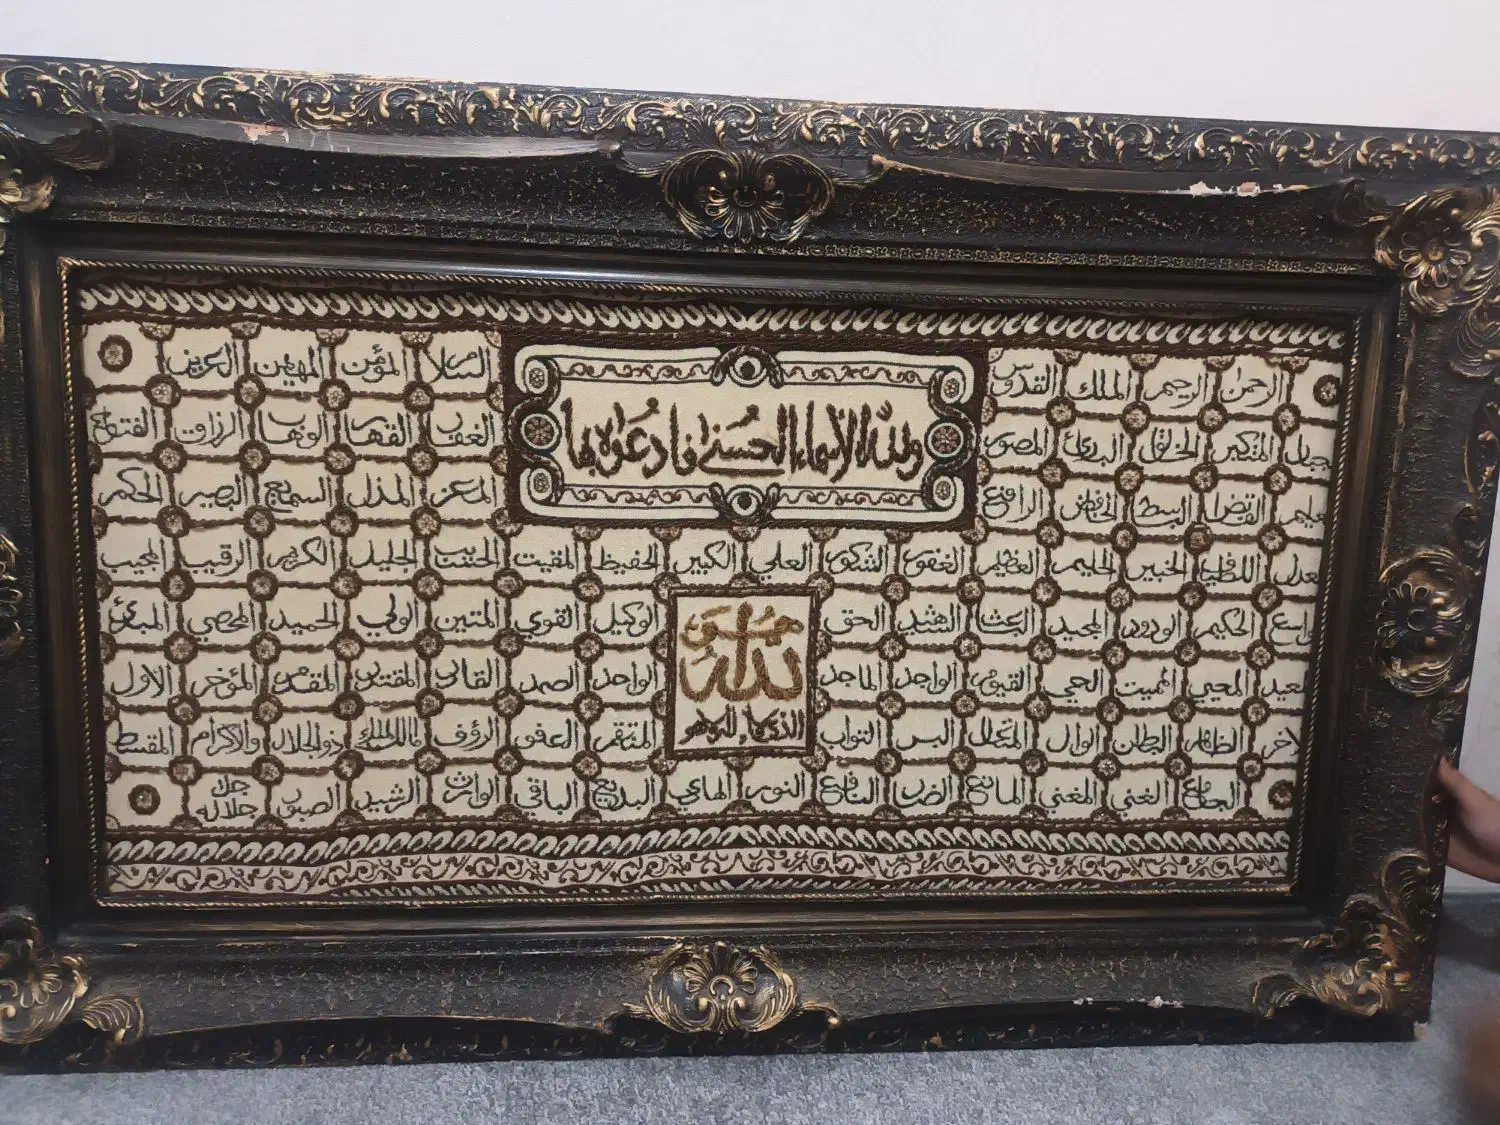 ولله الاسماء الحسنى فادعوه بها
الرحمن الرحيم الملك القدوس السلام المؤمن المهيمن العزيز
المتكبر الخالق البارئ المصور الغفار القهار الوهاب الرزاق الفتاح
القابض الباسط الخافض الرافع المعز المذل السميع البصير الحكم
اللطيف الخبير الحليم العظيم الغفور الشكور العلي الكبير الحفيظ المقيت الحسيب الجليل الكريم الرقيب المجيب
واسع الحكيم الودود المجيد الباعث الشهيد الحق الوكيل القوي المتين الولي الحميد المحصي المبدئ
هو الله
المعيد المحيي المميت الحي القيوم الواجد الماجد الواحد الصمد القادر المقتدر المقدم المؤخر الاول
الظاهر الباطن الوال المتعال البر التواب المنتقم العفو الرؤف مالك الملك ذو الجلال والاكرام المقسط
الجامع الغني المغني المانع الضار النافع النور الهادي البديع الباقي الوارث الرشيد الصبور جل جلاله